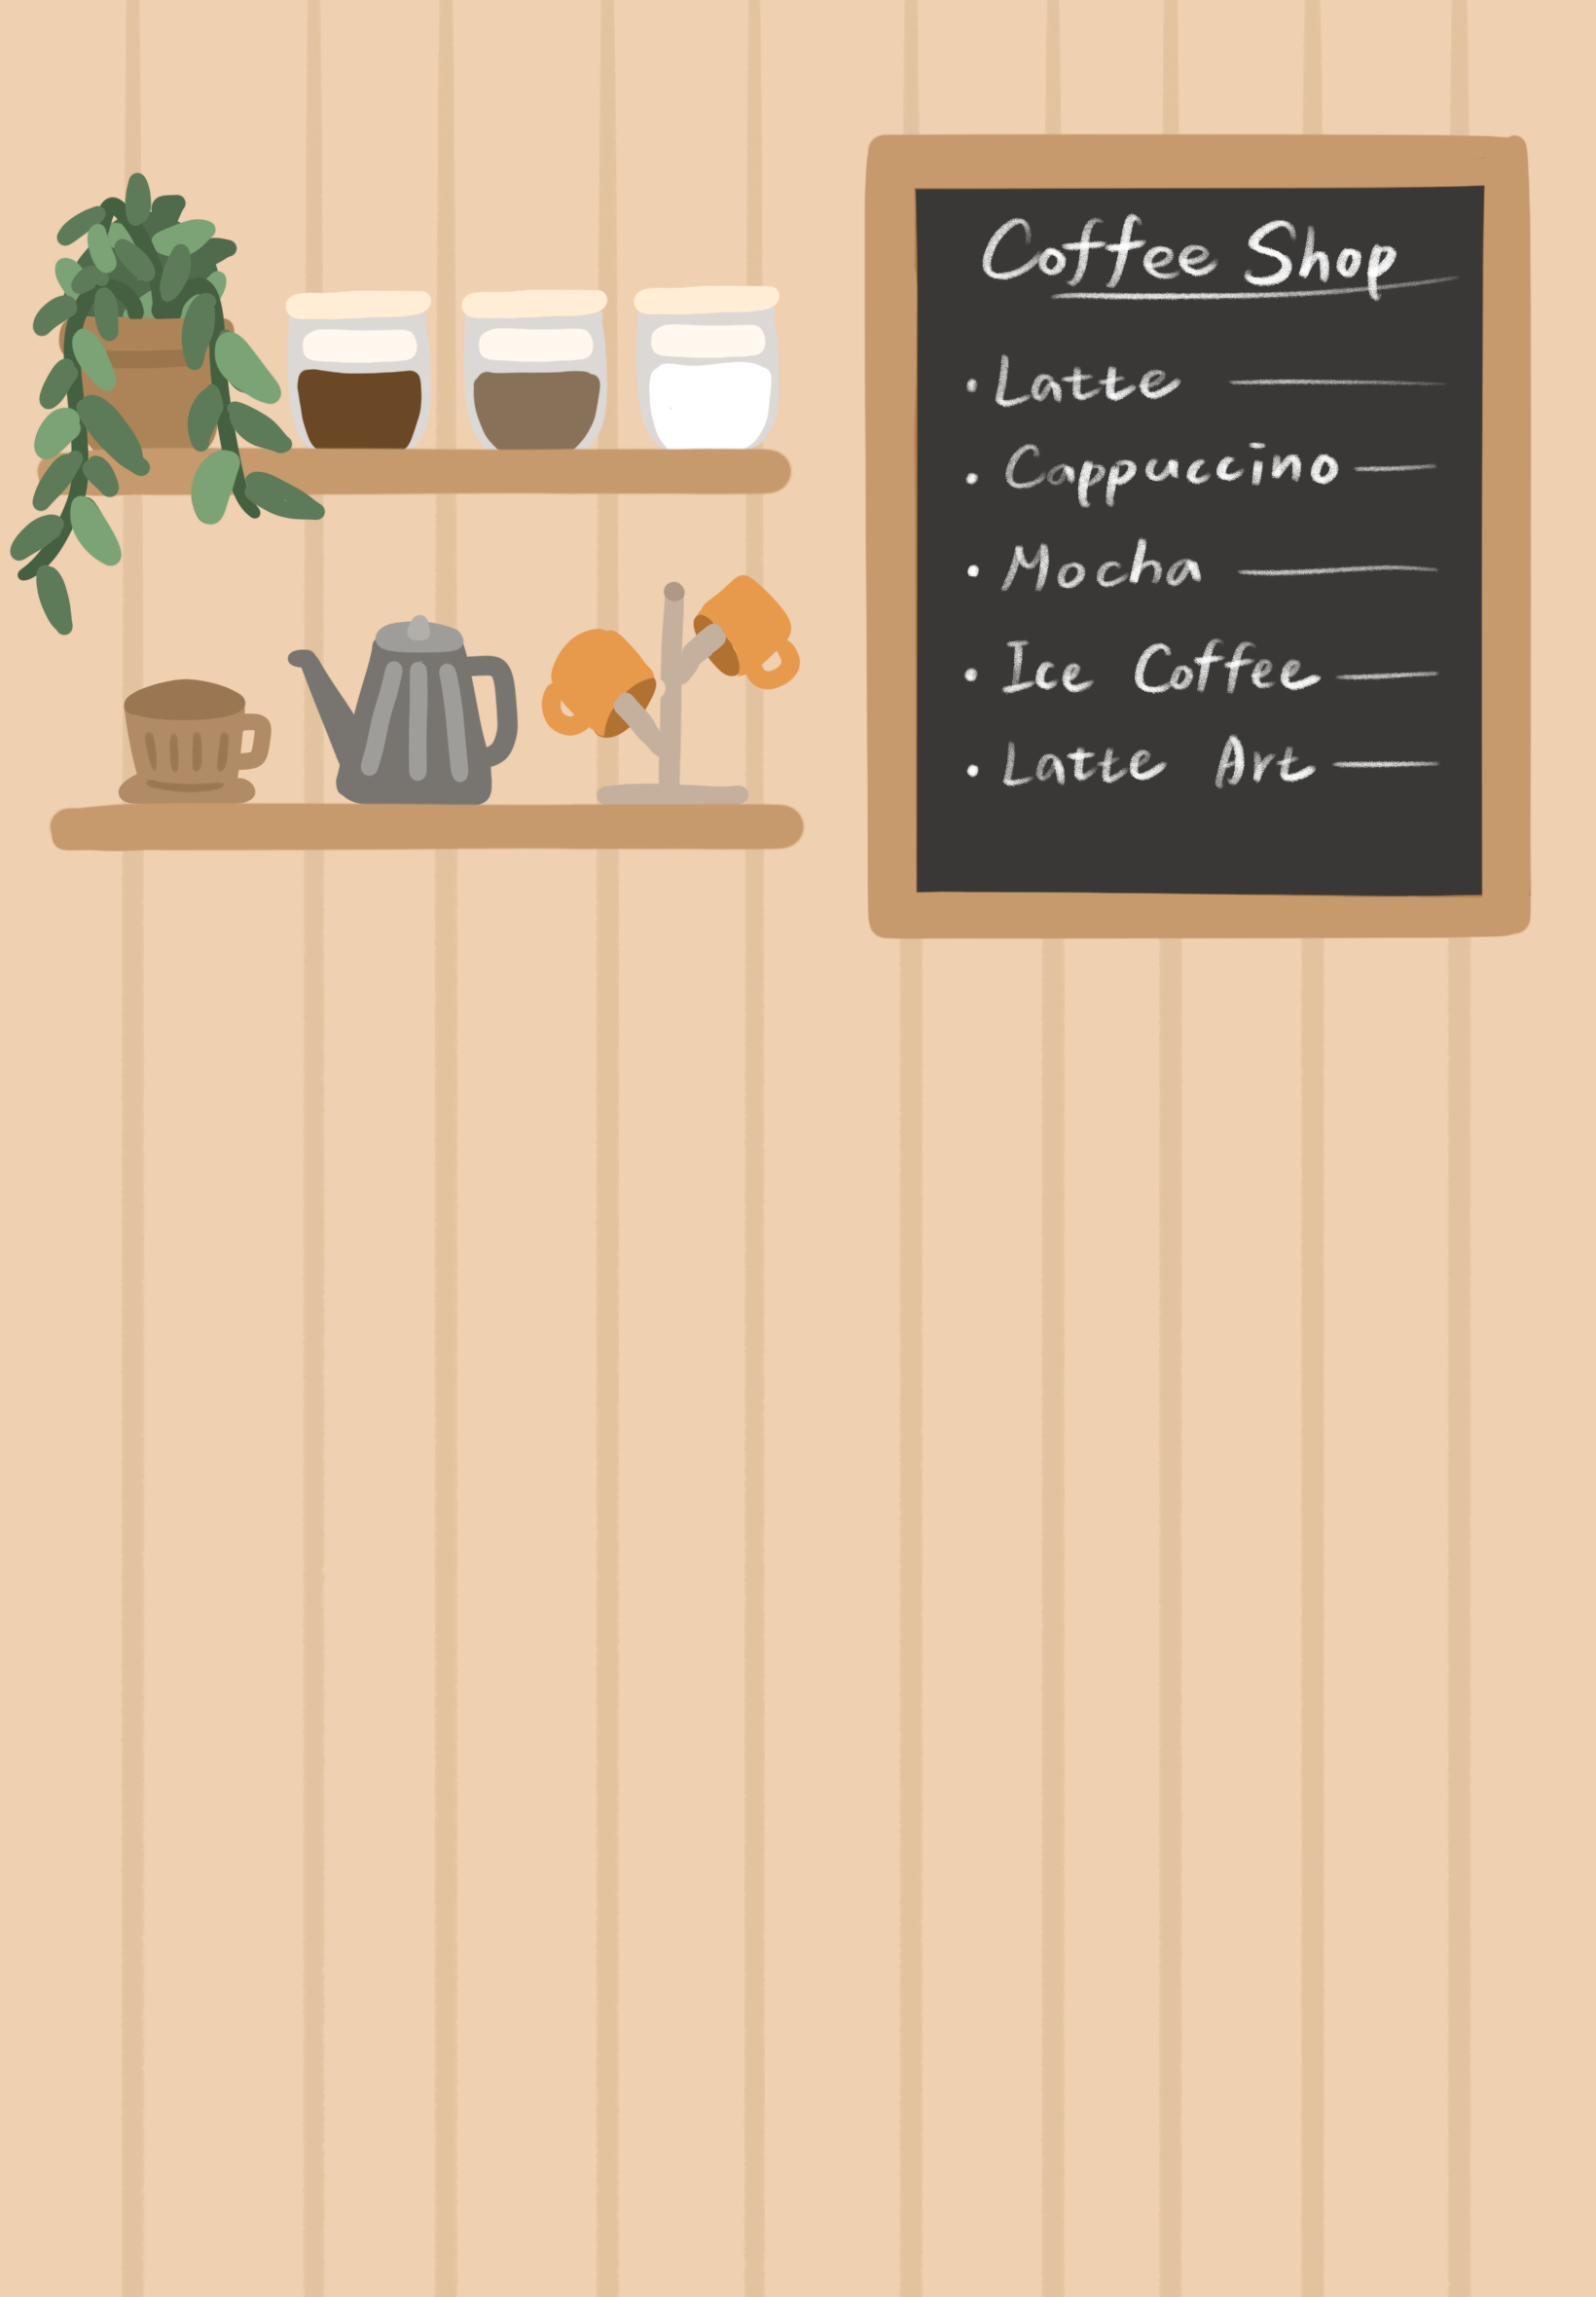 Coffee Shop
• Latte
• Cappuccino
• Mocha
• Ice Coffee
• Latte Art